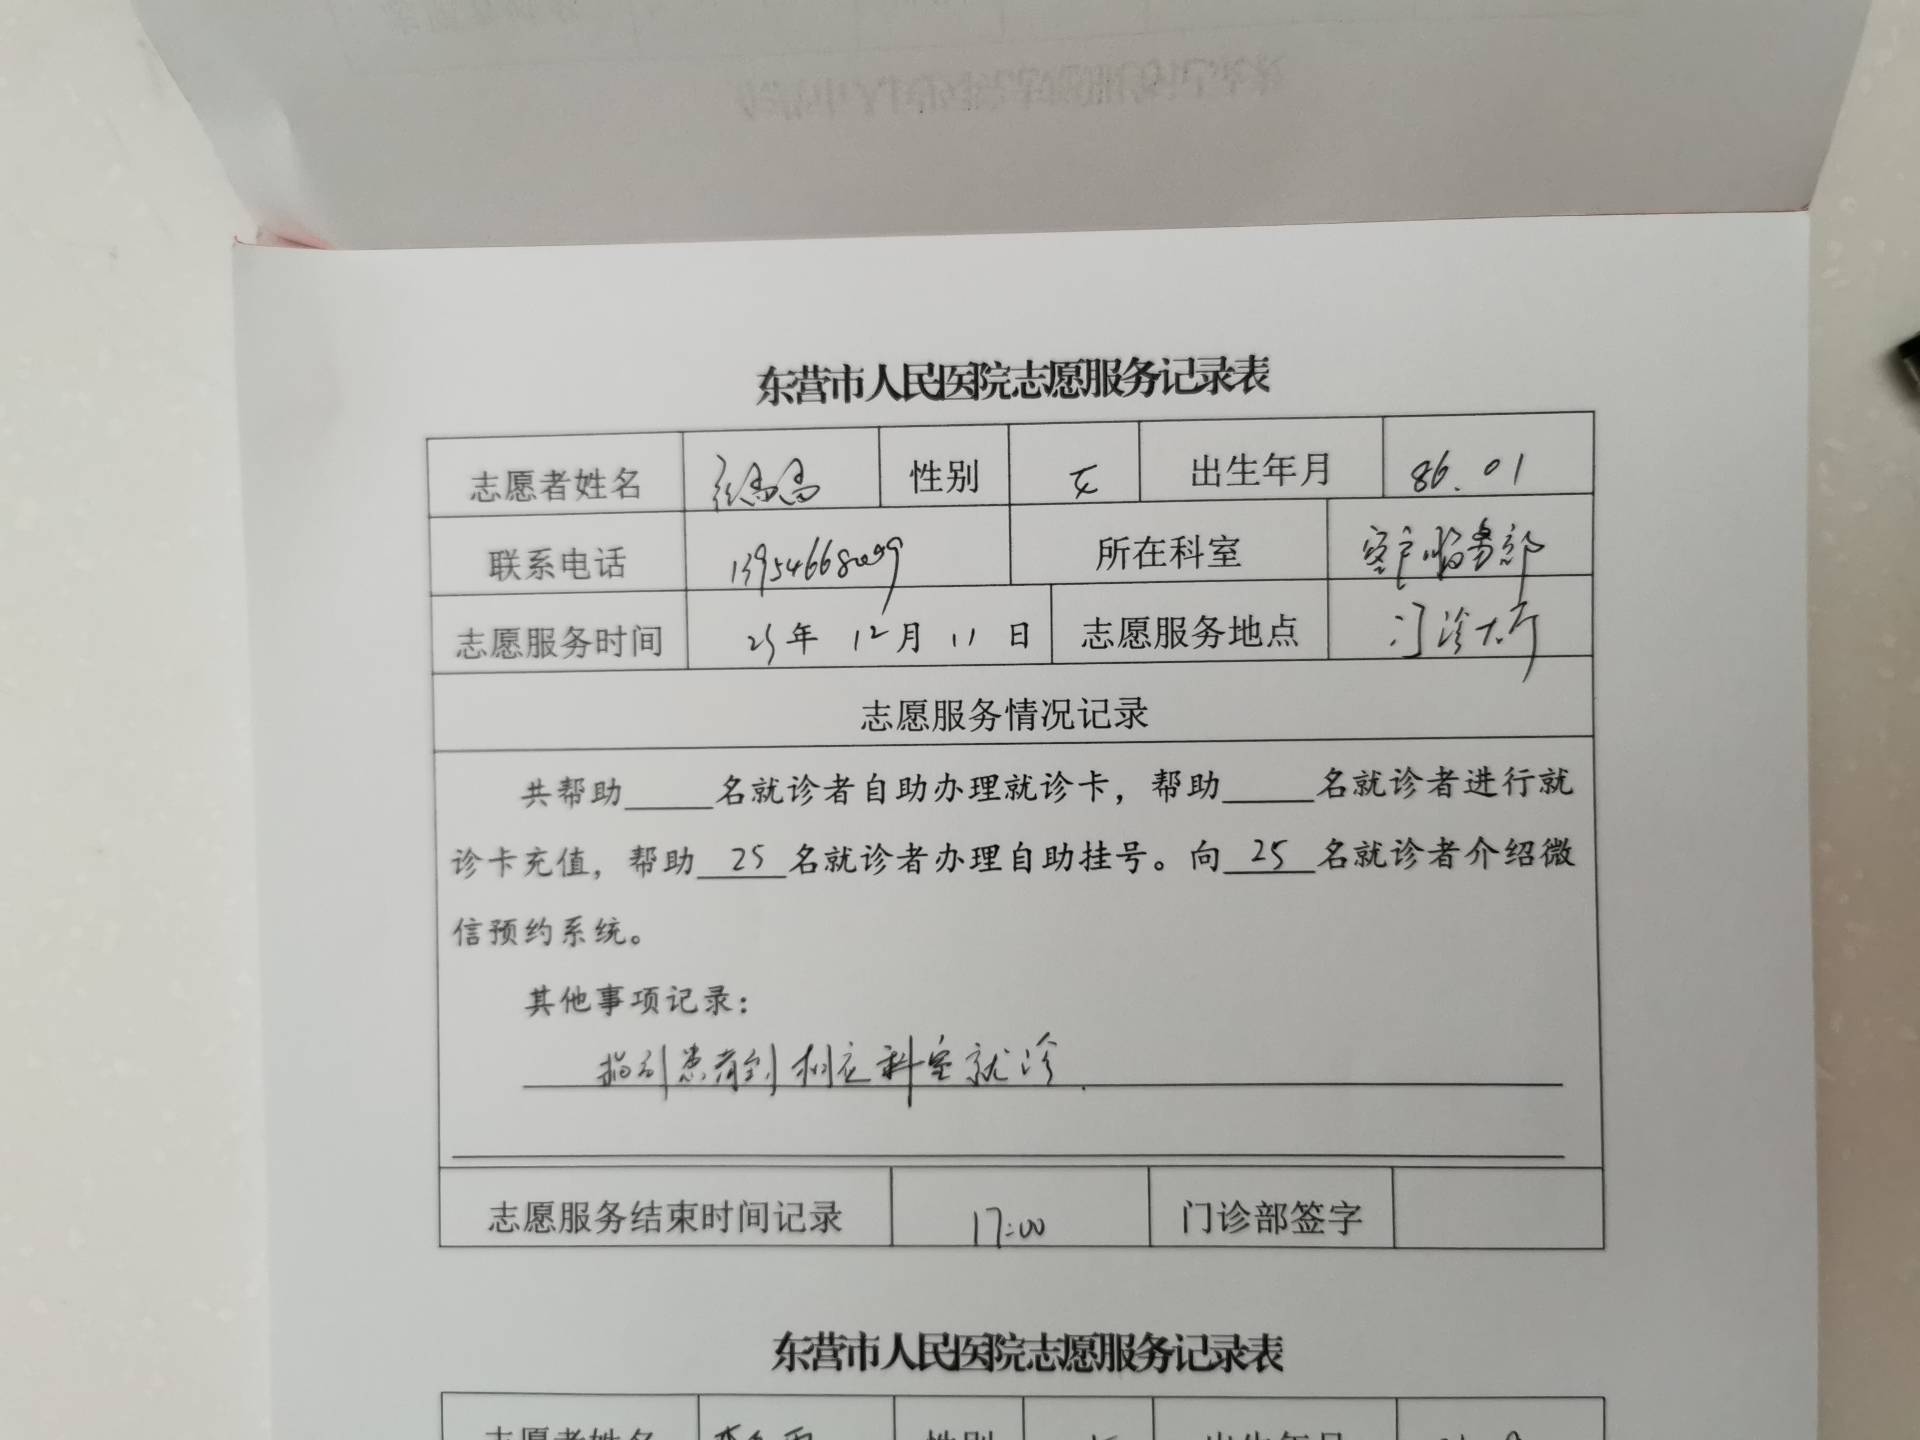 东营市人民医院志愿服务记录表
志愿者姓名 性别 女 出生年月 86.01
联系电话 所在科室 客户服务部
志愿服务时间 25年 12月 11日 志愿服务地点 门诊大厅
志愿服务情况记录
共帮助_____名就诊者自助办理就诊卡，帮助_____名就诊者进行就
诊卡充值，帮助 25 名就诊者办理自助挂号。向 25 名就诊者介绍微
信预约系统。
其他事项记录：
指引患者到相应科室就诊.
志愿服务结束时间记录 17:00 门诊部签字
东营市人民医院志愿服务记录表
志愿者姓名 性别 出生年月